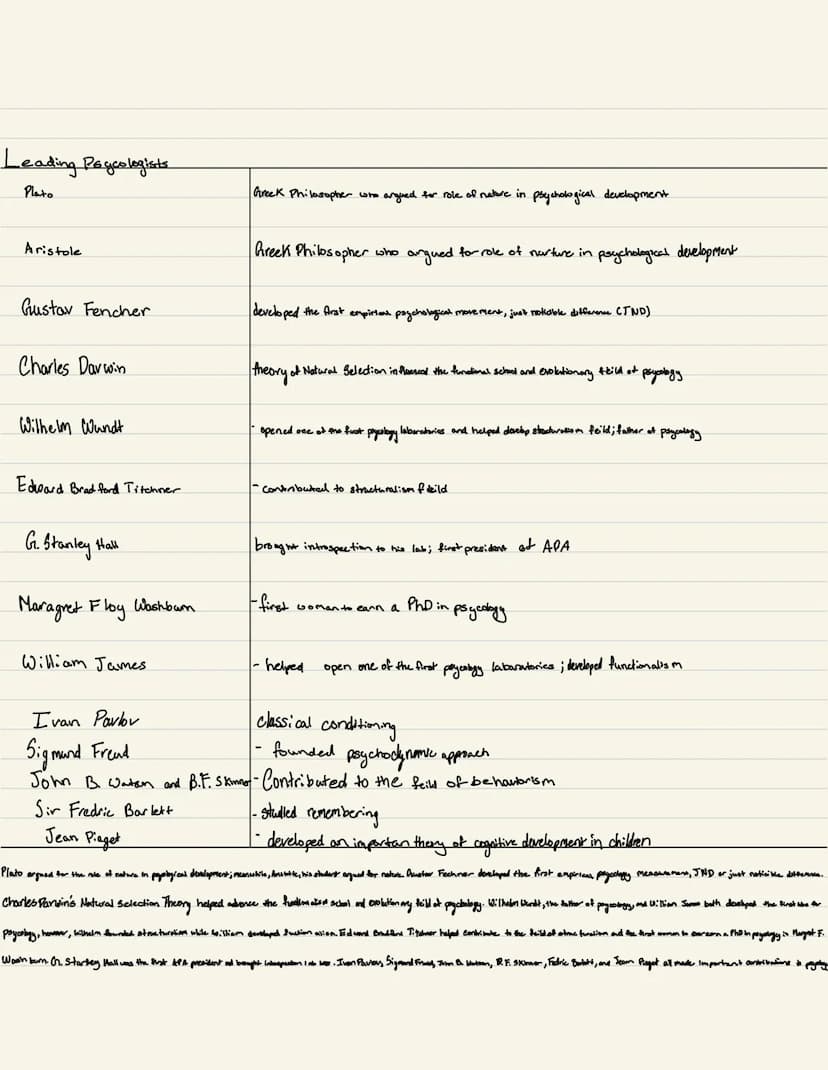 Leading Psycologists
Plato Greek Philosopher who argued for role of nature in psychological development
Aristole Greek Philosopher who argued for role of nurture in psychological development
Gustav Fencher developed the first empirical psychological movement, just noticable difference (JND)
Charles Darwin theory of Natural Selection influenced the functional school and evolutionary feild of psycology
Wilhelm Wundt - opened one of the first psycology laboratories and helped develop structuralism feild; father of psycology
Edward Bradford Titchner - contributed to structuralism feild
G. Stanley Hall brought introspection to his lab; first president of APA
Maragret Floy Washburn - first woman to earn a PhD in psycology
William James - helped open one of the first psycology laboratories; developed functionalism
Ivan Pavlov classical conditioning
Sigmund Freud - founded psychodynamic approach
John B. Watson and B.F. Skinner - Contributed to the feild of behaviorism
Sir Fredric Barlett - studied remembering
Jean Piaget - developed an importan theory of cognitive development in children
Plato argued for the role of nature in development; meanwhile, his student argued for Gustav Fechner developed the first empirical psycology JND or just noticible difference.
Charles Darwin's Natural Selection Theory helped advance the school and evolutionary feild of psychology. Wilhelm Wundt, the father of psycology, and William James both developed the first
psycology, however, Wilhelm founded structuralism while William developed Edward Bradford Titchner helped contribute to the feild of structuralism and the first woman to earn a PhD in psycology is Margret F.
Washburn. G. Stanley Hall was the first APA president and brought lab. Ivan Pavlov, Sigmund Freud, John B. Watson, B.F. Skinner, Fedric and Jean Piaget all made important contributions to